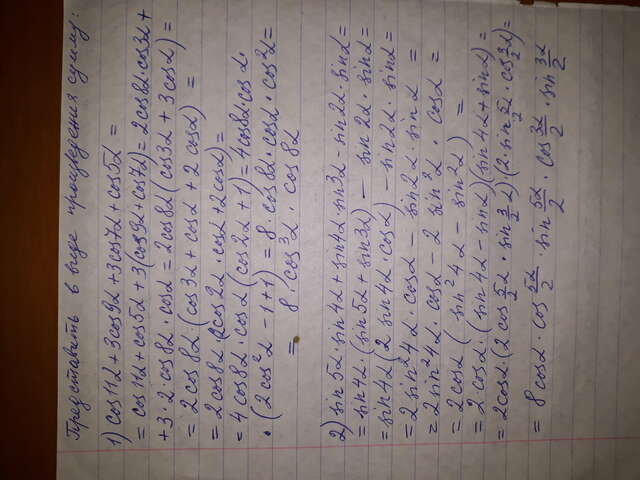 Представить в виде произведения сумму:
1) cos11α + 3cos9α + 3cos7α + cos5α =
= cos11α + cos5α + 3(cos9α + cos7α) = 2cos8α·cos3α +
+ 3·2·cos8α·cosα = 2cos8α(cos3α + 3cosα) =
= 2cos8α·(cos3α + cosα + 2cosα) =
= 2cos8α·(2cos2α·cosα + 2cosα) =
= 4cos8α·cosα(cos2α + 1) = 4cos8α·cosα·
·(2cos²α - 1 + 1) = 8·cos8α·cosα·cos²α =
= 8·cos³α·cos8α
2) sin5α·sin4α + sin4α·sin3α - sin2α·sinα =
= sin4α·(sin5α + sin3α) - sin2α·sinα =
= sin4α(2sin4α·cosα) - sin2α·sinα =
= 2sin²4α·cosα - sin2α·sinα =
= 2sin²4α·cosα - 2sin²α·cosα =
= 2cosα(sin²4α - sin²α) =
= 2·cosα·(sin4α - sinα)(sin4α + sinα) =
= 2cosα·(2cos 5/2 α·sin 3/2 α)·(2·sin 5/2 α·cos 3/2 α) =
= 8cosα·cos 5α/2·sin 5α/2·cos 3α/2·sin 3α/2